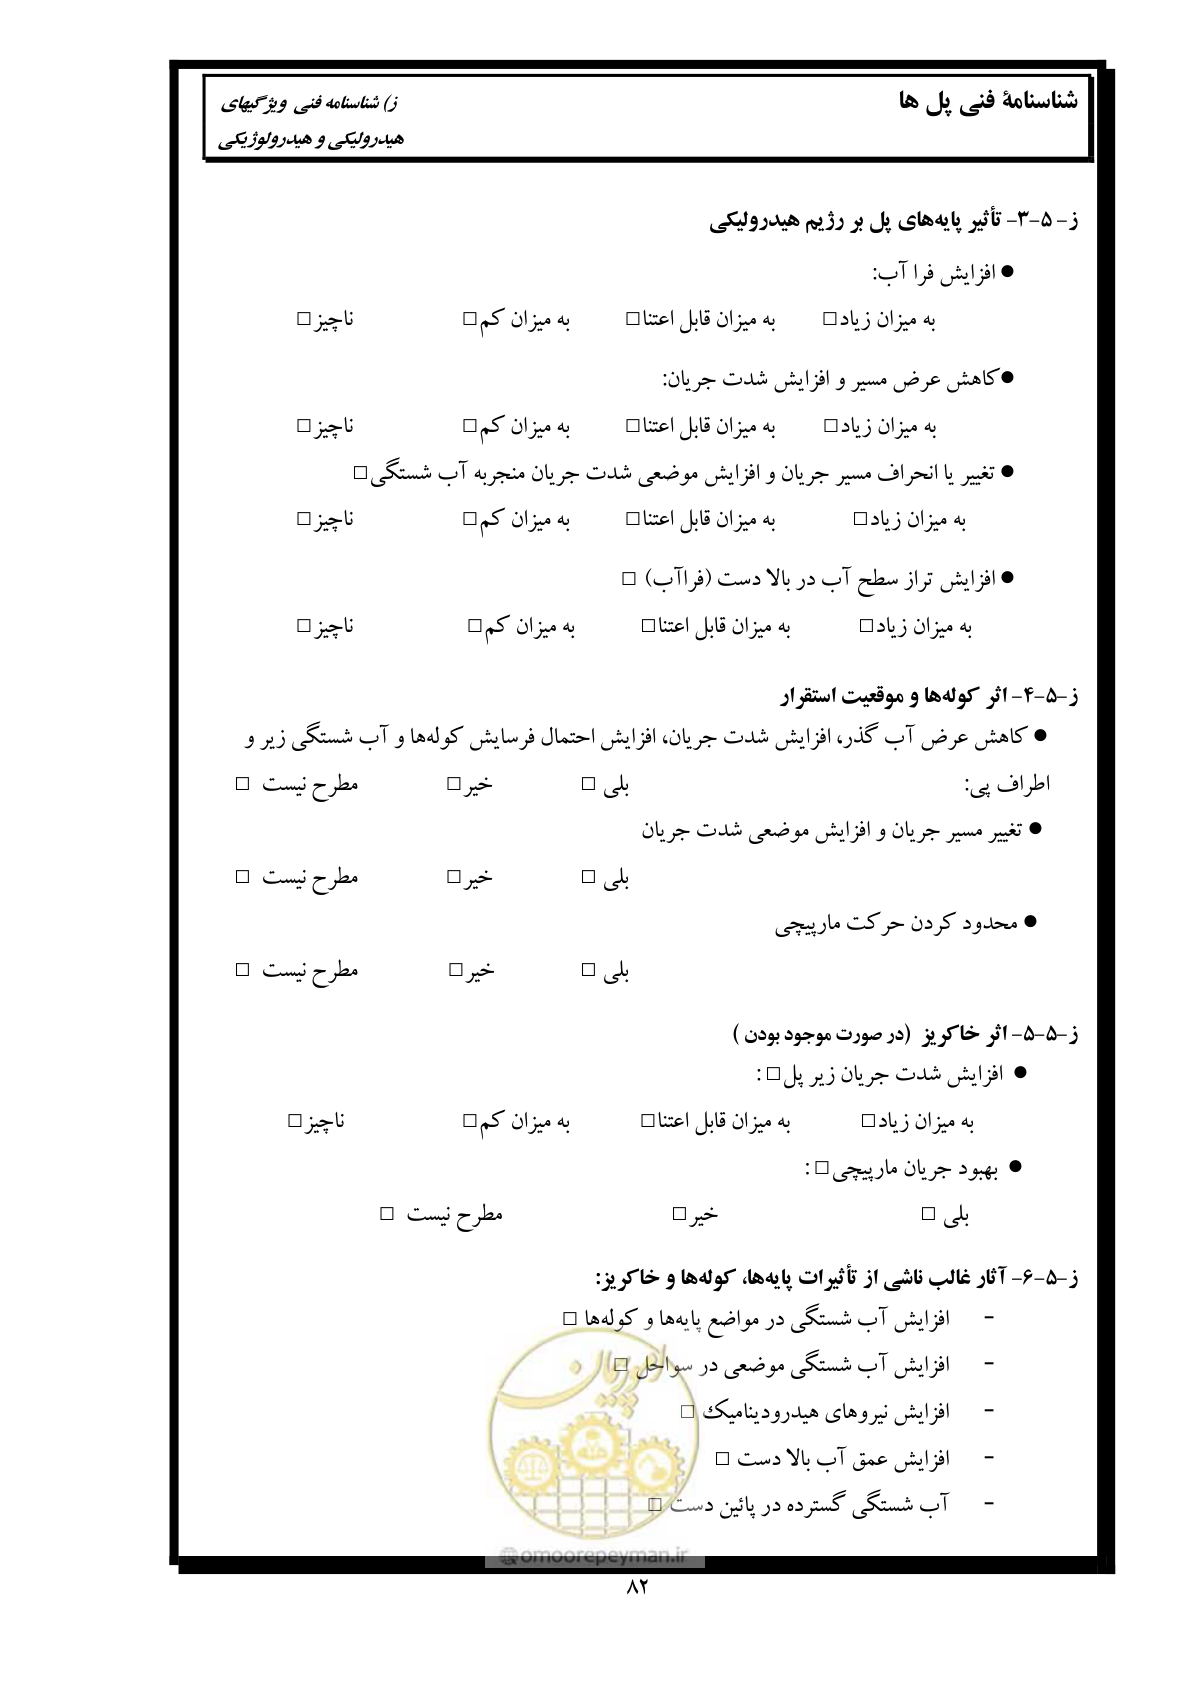 شناسنامهٔ فنی پل ها
ز) شناسنامه فنی ویژگیهای
هیدرولیکی و هیدرولوژیکی
ز- ۵-۳- تأثیر پایه‌های پل بر رژیم هیدرولیکی
● افزایش فرا آب:
به میزان زیاد□ به میزان قابل اعتنا□ به میزان کم□ ناچیز□
●کاهش عرض مسیر و افزایش شدت جریان:
به میزان زیاد□ به میزان قابل اعتنا□ به میزان کم□ ناچیز□
● تغییر یا انحراف مسیر جریان و افزایش موضعی شدت جریان منجربه آب شستگی□
به میزان زیاد□ به میزان قابل اعتنا□ به میزان کم□ ناچیز□
● افزایش تراز سطح آب در بالا دست (فراآب) □
به میزان زیاد□ به میزان قابل اعتنا□ به میزان کم□ ناچیز□
ز-۵-۴- اثر کوله‌ها و موقعیت استقرار
● کاهش عرض آب گذر، افزایش شدت جریان، افزایش احتمال فرسایش کوله‌ها و آب شستگی زیر و
اطراف پی: بلی □ خیر□ مطرح نیست □
● تغییر مسیر جریان و افزایش موضعی شدت جریان
بلی □ خیر□ مطرح نیست □
● محدود کردن حرکت مارپیچی
بلی □ خیر□ مطرح نیست □
ز-۵-۵- اثر خاکریز (در صورت موجود بودن )
● افزایش شدت جریان زیر پل□ :
به میزان زیاد□ به میزان قابل اعتنا□ به میزان کم□ ناچیز□
● بهبود جریان مارپیچی□ :
بلی □ خیر□ مطرح نیست □
ز-۵-۶- آثار غالب ناشی از تأثیرات پایه‌ها، کوله‌ها و خاکریز:
- افزایش آب شستگی در مواضع پایه‌ها و کوله‌ها □
- افزایش آب شستگی موضعی در سواحل □
- افزایش نیروهای هیدرودینامیک □
- افزایش عمق آب بالا دست □
- آب شستگی گسترده در پائین دست □
امور پیمان
@omoorepeyman.ir
۸۲